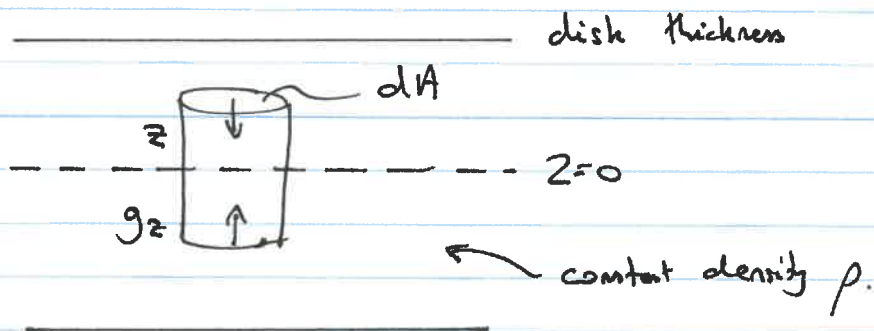 disk thickness
dA
z
z=0
gz
constant density ρ.